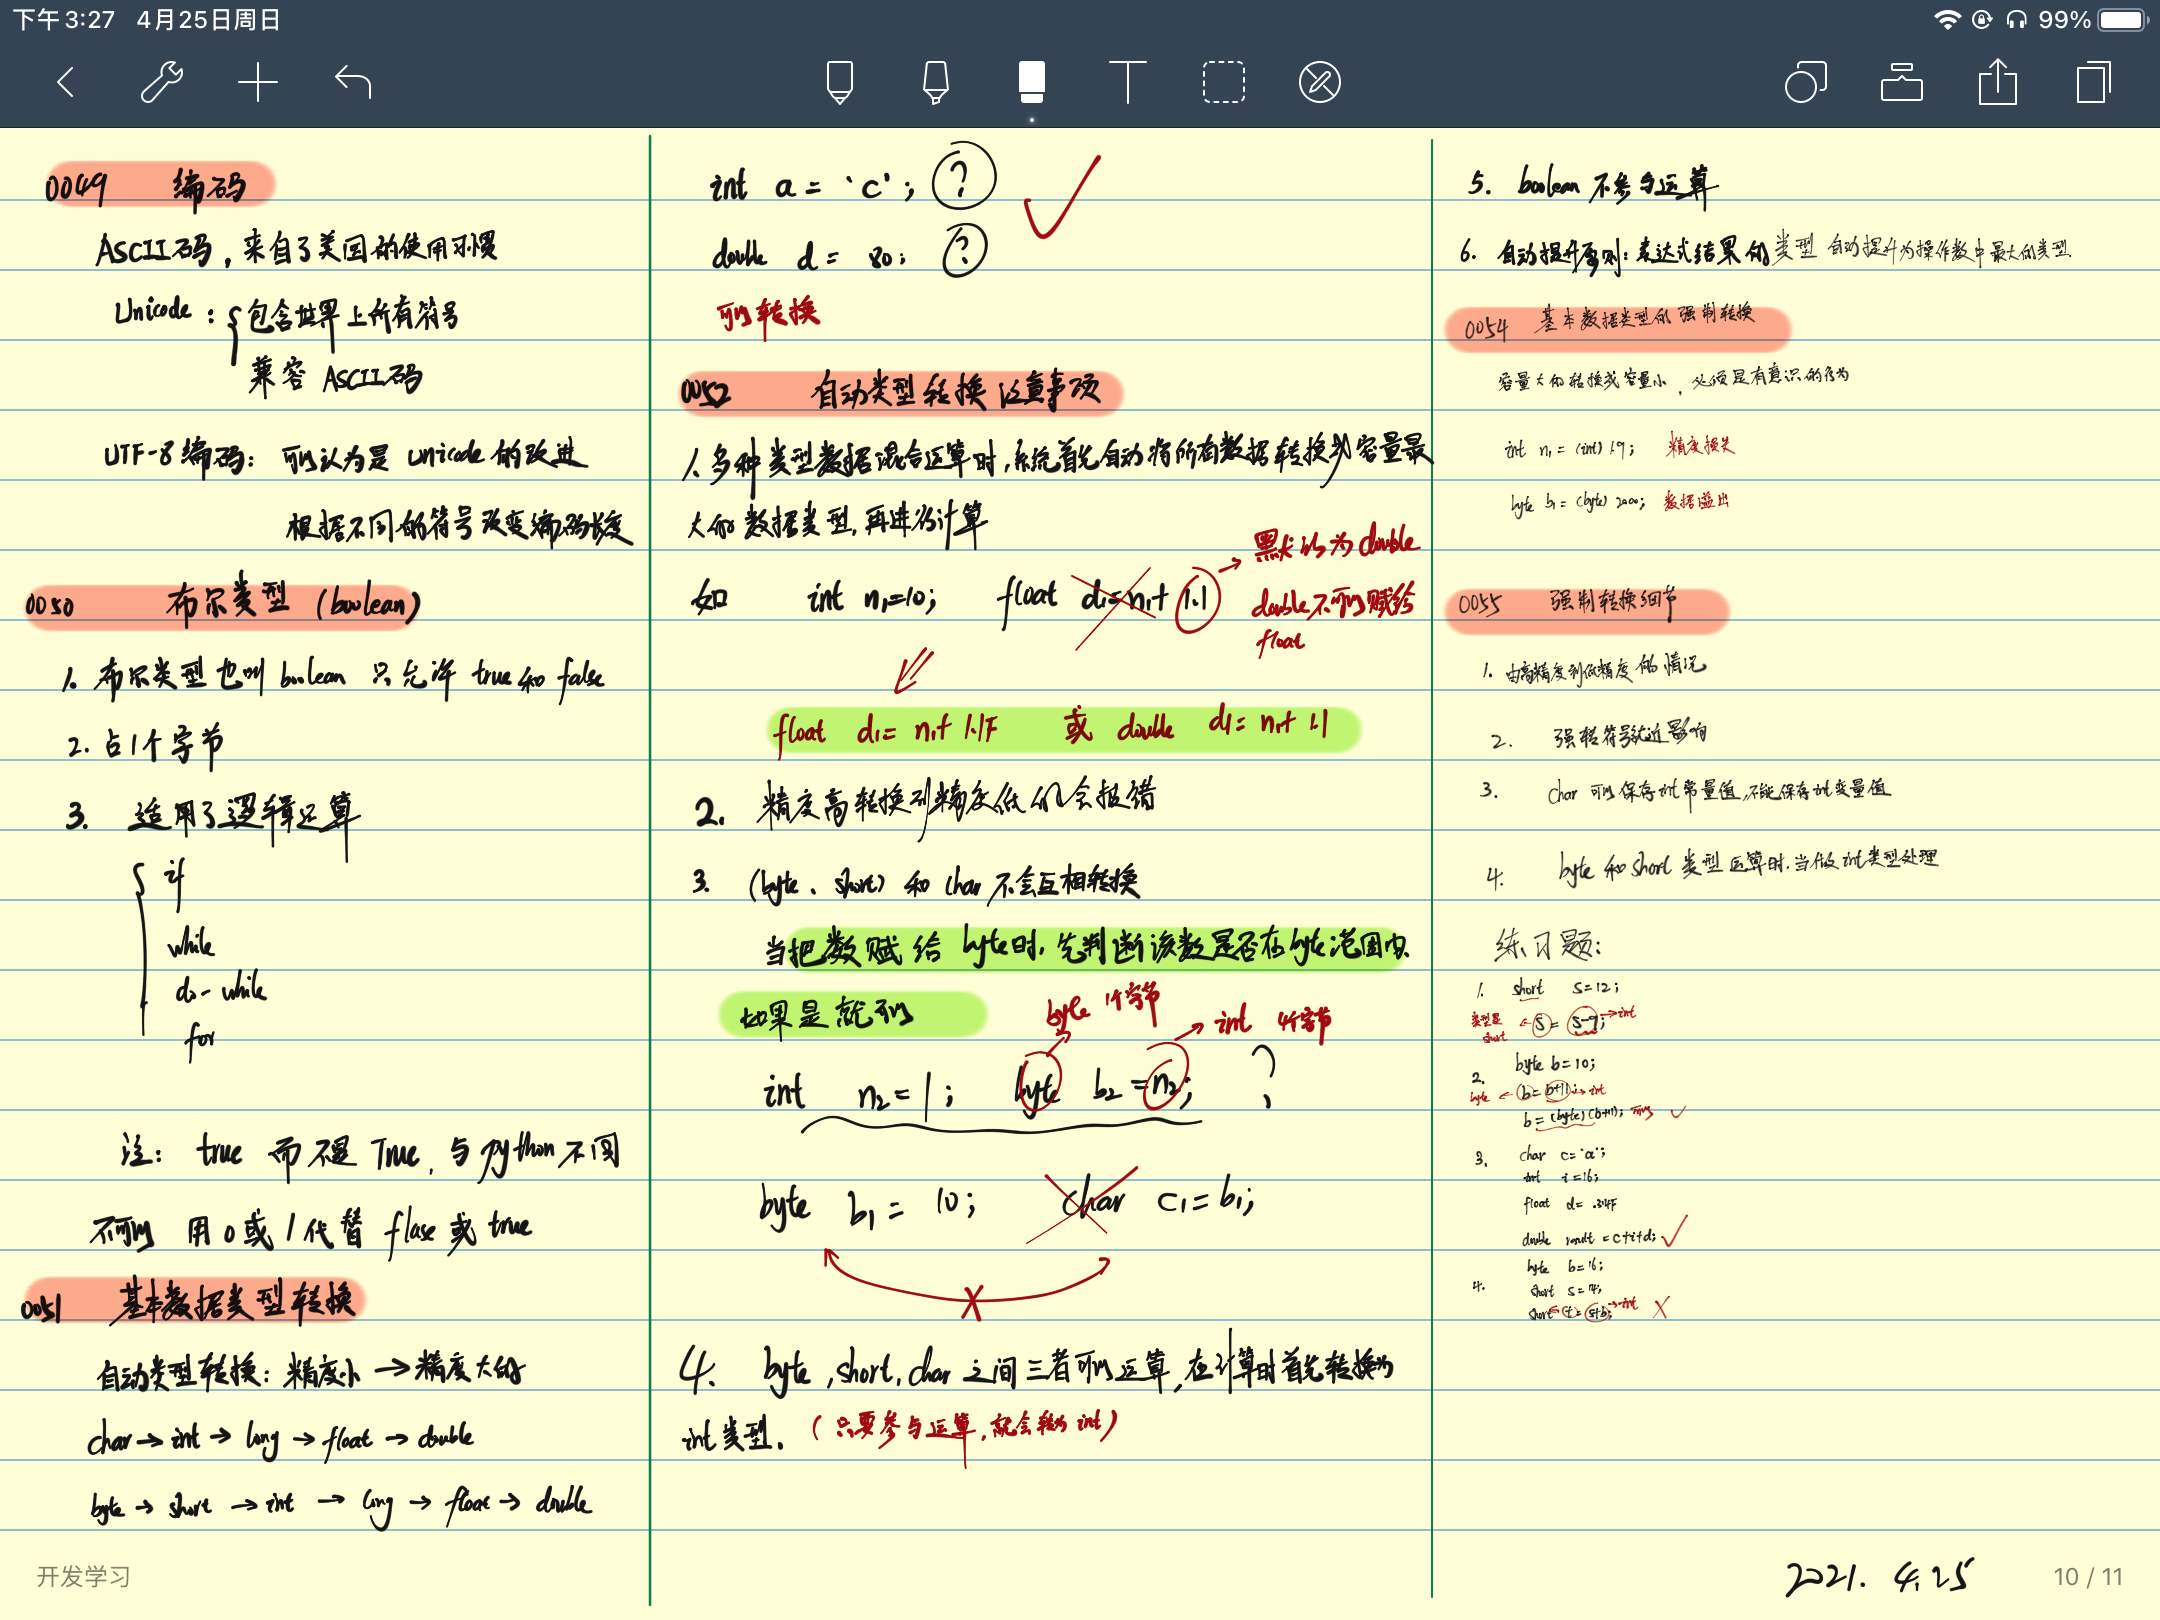 下午3:27 4月25日周日
99%
0049 编码
ASCII码,来自了美国的使用习惯
Unicode : { 包含世界上所有符号
兼容 ASCII码
UTF-8编码: 可以认为是 unicode 的改进
根据不同的符号改变编码长度
0050 布尔类型 (boolean)
1. 布尔类型也叫 boolean 只允许 true 和 false
2. 占1个字节
3. 适用了逻辑运算
{ if
while
do-while
for
注: true 而不是 True, 与 python 不同
不可以 用 0 或 1 代替 flase 或 true
0051 基本数据类型转换
自动类型转换: 精度小 → 精度大的
char → int → long → float → double
byte → short → int → long → float → double
int a = 'c'; ? ✓
double d = 80; ?
可以转换
0052 自动类型转换 注意事项
1. 多种类型数据混合运算时,系统首先自动将所有数据转换成容量最
大的数据类型,再进行计算
如 int n₁=10; float d₁=n₁+ 1.1 → 默认为double
double不可以赋给
float
float d₁= n₁+ 1.1F 或 double d₁= n₁+ 1.1
2. 精度高转换到精度低的会报错
3. (byte、short) 和 char 不会互相转换
当把数赋给 byte时,先判断该数是否在byte范围内
如果是就可以
byte 1个字节
int 4个字节
int n₂=1; byte b₂=n₂; ?
byte b₁ = 10; char c₁=b₁;
X
4. byte,short,char 之间三者可以运算,在计算时首先转换为
int类型. (只要参与运算,就会转为 int)
5. boolean 不参与运算
6. 自动提升原则:表达式结果的类型 自动提升为操作数中最大的类型
0054 基本数据类型的 强制转换
容量大的转换成容量小,必须是有意识的行为
int n₁ = (int) 1.9; 精度损失
byte b₁ = (byte) 2000; 数据溢出
0055 强制转换细节
1. 由高精度到低精度的情况
2. 强转符号就近影响
3. char 可以保存int常量值,不能保存int变量值
4. byte 和 short 类型运算时,当做int类型处理
练习题:
1. short s=12;
类型是 ← s = s-9; → int
short
2. byte b=10;
byte ← b = b+11; → int
b = (byte)(b+11); 可以 ✓
3. char c='a';
int i=16;
float d= .314F
double result = c+i+d; ✓
4. byte b=16;
short s=14;
short ← t = s+b; → int X
开发学习
2021. 4.25
10 / 11